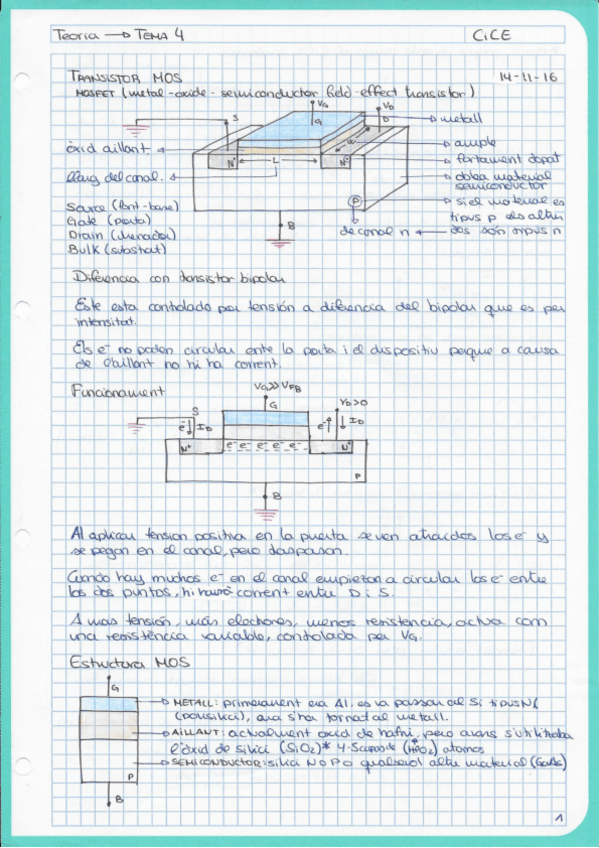 Teoria → TEMA 4
CiCE
TRANSISTOR MOS
14-11-16
MOSFET (metal-oxide-semiconductor field-effect transistor)
VG
VD
S
G
D
metall
òxid aïllant
W
ample
N+
L
N+
fortament dopat
llarg del canal.
oblea material
semiconductor
Source (font-base)
P
si el material es
Gate (porta)
tipus p els altres
Drain (drenador)
B
de canal n ← dos són tipus n
Bulk (substrat)
Diferencia con transistor bipolar
Este esta controlado por tensión a diferencia del bipolar que es per
intensitat.
Els e- no poden circular entre la porta i el dispositiu perque a causa
de l'aillant no hi ha corrent.
Funcionament
VG>>VFB
G
VD>0
S
e- ↓ ID
e- ↑ ↓ ID
N+
e- e- e- e- e-
N+
P
B
Al aplicar tension positiva en la puerta se ven atraidos los e- y
se pegan en el canal, pero traspasan.
Cuando hay muchos e- en el canal empiezan a circular los e- entre
los dos puntos, hi haurà corrent entre D i S.
A mas tensión, más electrones, menos resistencia, actua com
una resistència variable, controlada per VG.
Estructura MOS
G
METALL: primerament era Al. es va passar al Si tipus N
(polisilici), ara s'ha tornat al metall.
AILLANT: actualment oxid de hafni, pero abans s'utilitzaba
l'òxid de silici (SiO2)* 4-5 (HfO2) atomos
P
SEMICONDUCTOR: silici N o P o qualsevol altre material (GaAs)
B
1